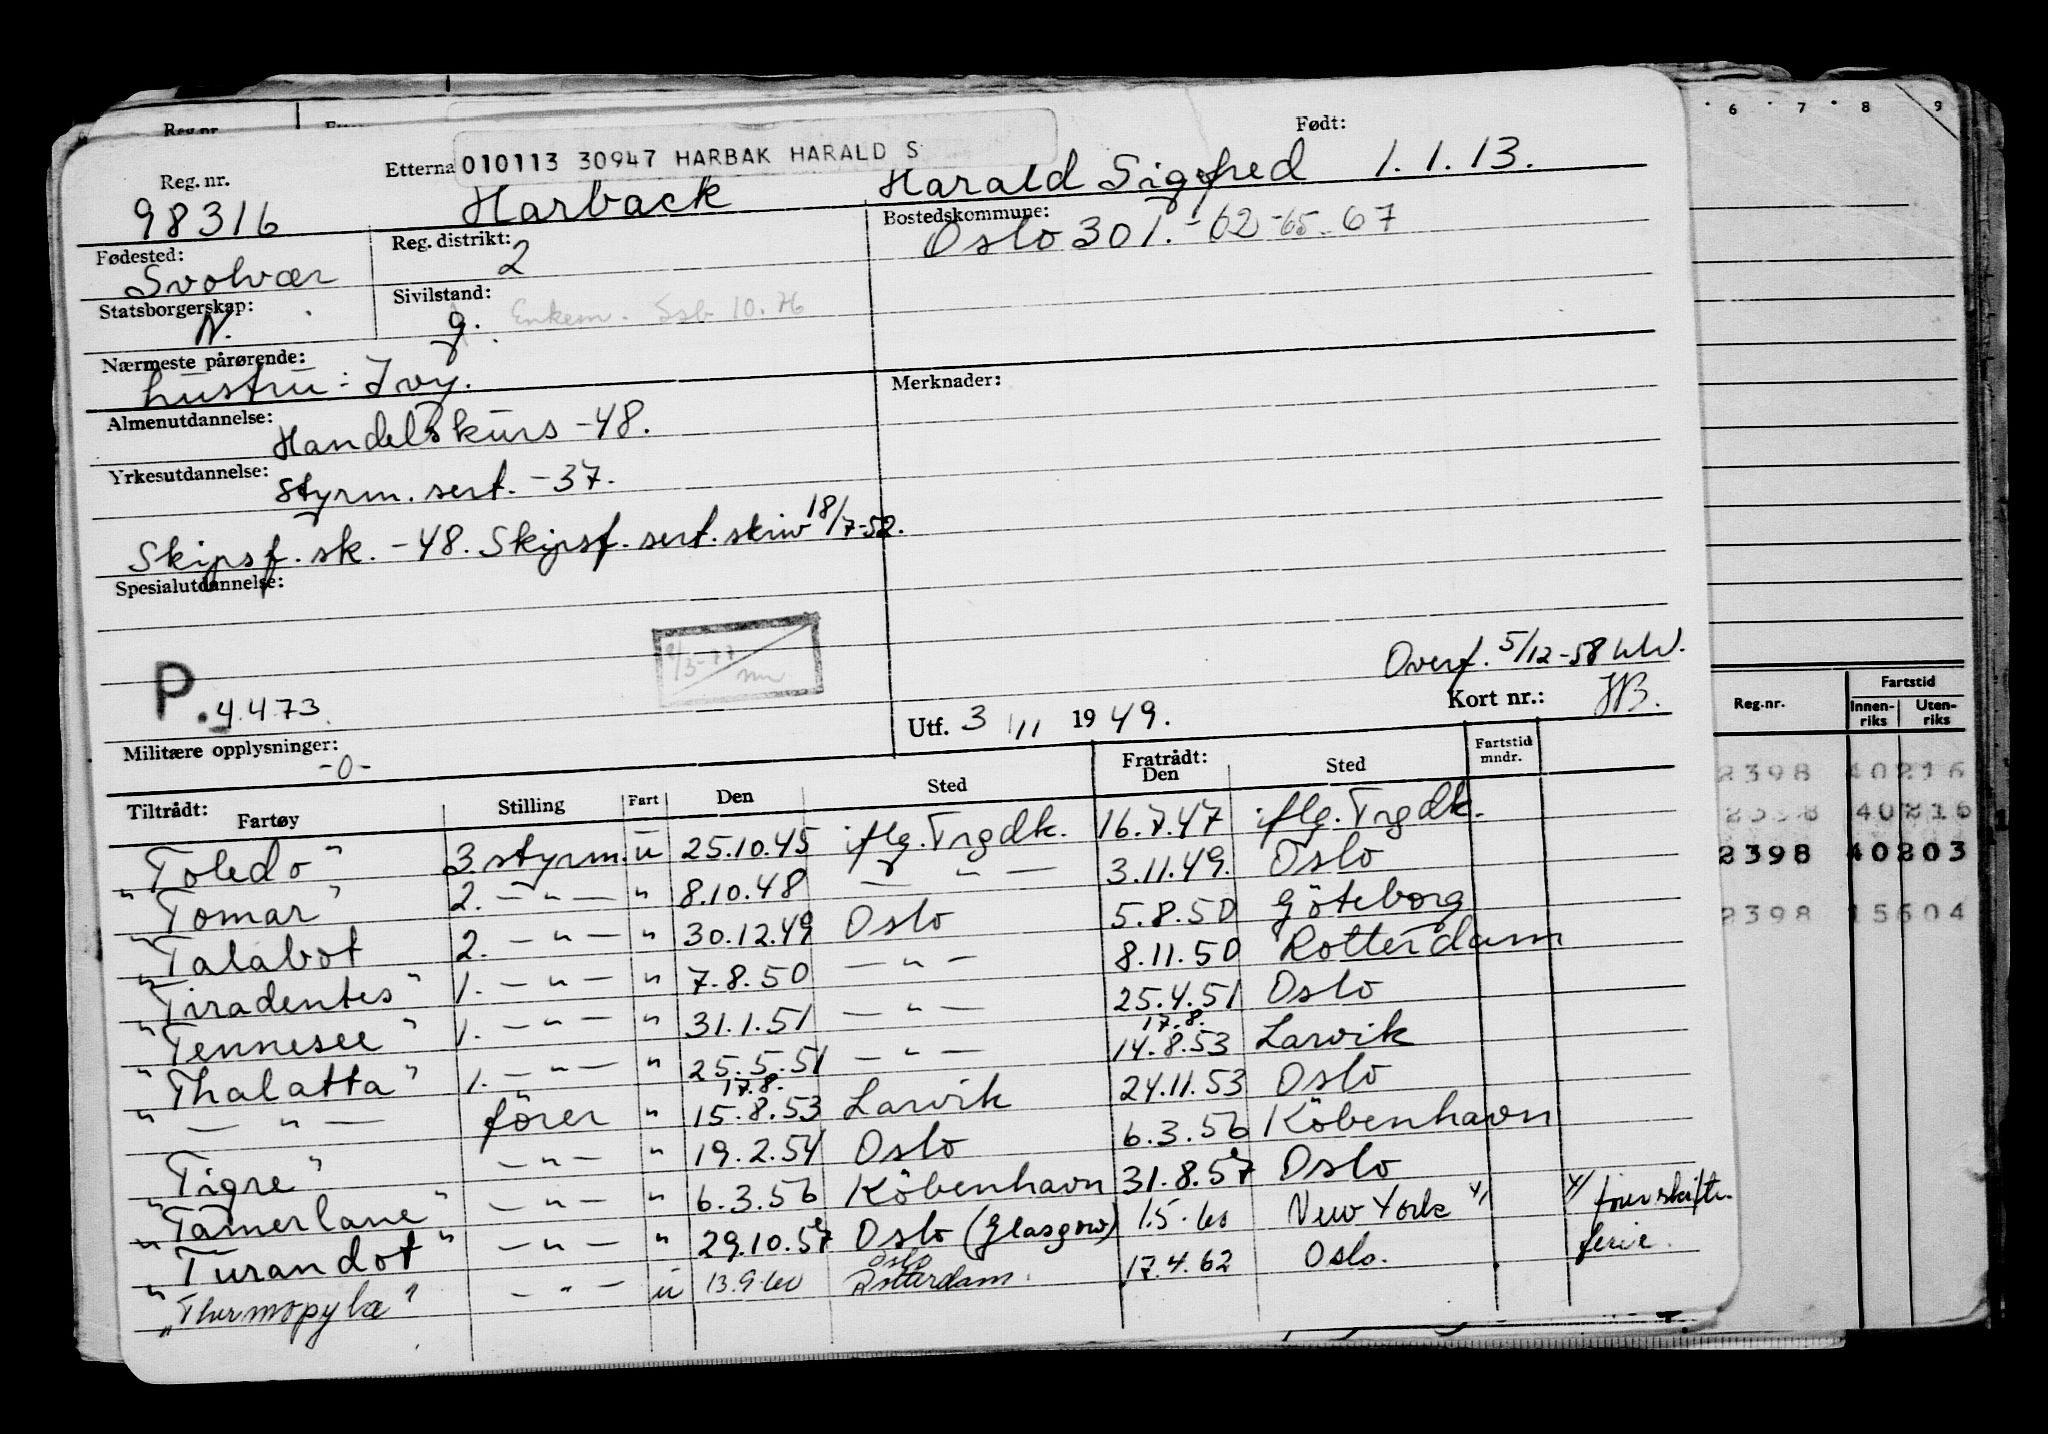 Reg.nr. Etterna 010113 30947 HARBAK HARALD S Født:
Reg. nr. 98316 Harback Harald Sigfred 1.1.13.
Fødested: Svolvær Reg. distrikt: 2 Bostedskommune: Oslo 301.-62-65-67
Statsborgerskap: N. Sivilstand: g. Enkem. Ssb 10.76
Nærmeste pårørende: hustru: Ivy. Merknader:
Almenutdannelse: Handelskurs -48.
Yrkesutdannelse: styrm. sert. -37.
Skipsf. sk. -48. Skipsf. sert. skriv 18/7-52.
Spesialutdannelse:
P. 4.4.73.
Overf. 5/12-58
Utf. 3/11 1949. Kort nr.: HB.
Militære opplysninger: -0-
Tiltrådt: Fratrådt:
Fartøy Stilling Fart Den Sted Den Sted Fartstid mndr.
"Toledo" 3. styrm. u 25.10.45 iflg. Trgdk. 16.7.47 iflg. Trgdk.
"Tomar" 2. — " — " 8.10.48 — " — 3.11.49. Oslo
"Talabot 2. — " — " 30.12.49 Oslo 5.8.50 Göteborg
"Tiradentes" 1. — " — " 7.8.50 — " — 8.11.50 Rotterdam
"Tennesee" 1. — " — " 31.1.51 — " — 25.4.51 Oslo
"Thalatta" 1. — " — " 25.5.51 — " — 17.8. 14.8.53 Larvik
" — " — förer " 17.8. 15.8.53 Larvik 24.11.53 Oslo
"Tigre" — " — " 19.2.54 Oslo 6.3.56 Köbenhavn
"Tamerlane" — " — " 6.3.56 Köbenhavn 31.8.57 Oslo
"Turandot" — " — " 29.10.57 Oslo (Glasgow) 1.5.60 New York
"Thermopylæ" — " — u 13.9.60 Oslo Rotterdam. 17.4.62 Oslo.
ferie.
6 7 8 9
Reg.nr. Fartstid
Innenriks Utenriks
2398 40216
2398 40216
2398 40203
2398 15604